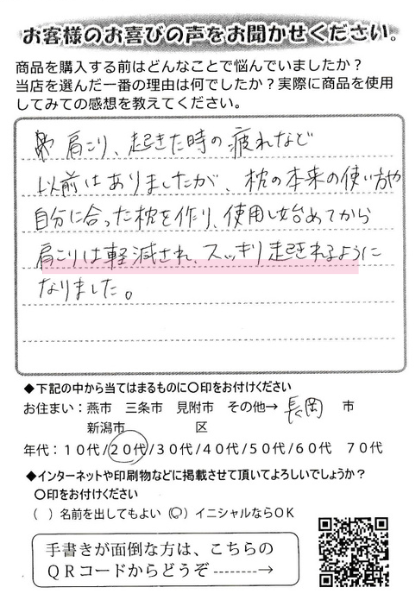 お客様のお喜びの声をお聞かせください。
商品を購入する前はどんなことで悩んでいましたか？
当店を選んだ一番の理由は何でしたか？実際に商品を使用
してみての感想を教えてください。
肩こり、起きた時の疲れなど
以前はありましたが、枕の本来の使い方や
自分に合った枕を作り、使用し始めてから
肩こりは軽減され、スッキリ起きれるように
なりました。
◆下記の中から当てはまるものに〇印をお付けください
お住まい：燕市 三条市 見附市 その他→ 長岡 市
新潟市 区
年代：１０代/２０代/３０代/４０代/５０代/６０代 ７０代
◆インターネットや印刷物などに掲載させて頂いてよろしいでしょうか？
〇印をお付けください
（ ）名前を出してもよい（〇）イニシャルならＯＫ
手書きが面倒な方は、こちらの
ＱＲコードからどうぞ--------→